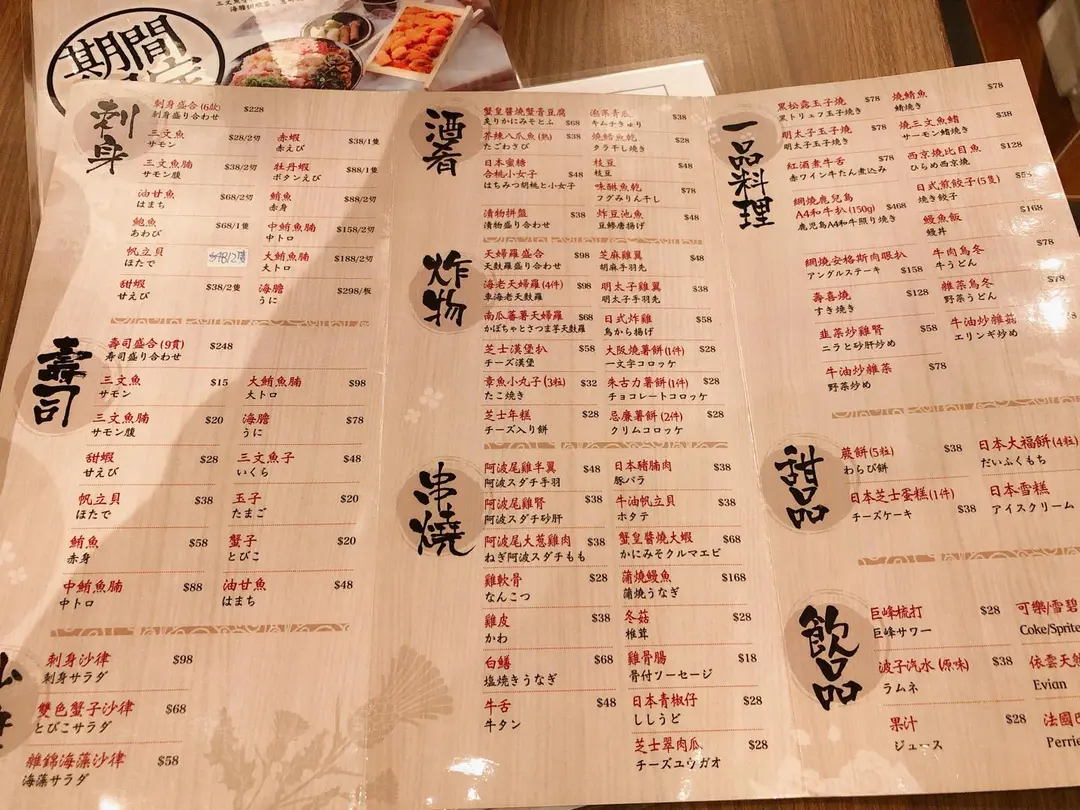 期間
刺身
刺身盛合 (6款) $228
刺身盛り合わせ
三文魚 $28/2切
サモン
三文魚腩 $38/2切
サモン腹
油甘魚 $68/2切
はまち
鮑魚 $68/1隻
あわび
帆立貝
ほたて
甜蝦 $38/2隻
甘えび
赤蝦 $38/1隻
赤えび
牡丹蝦 $88/1隻
ボタンえび
鮪魚 $88/2切
赤身
中鮪魚腩 $158/2切
中トロ
大鮪魚腩 $188/2切
大トロ
海膽 $298/板
うに
壽司
壽司盛合 (9貫) $248
寿司盛り合わせ
三文魚 $15
サモン
三文魚腩 $20
サモン腹
甜蝦 $28
甘えび
帆立貝 $38
ほたて
鮪魚 $58
赤身
中鮪魚腩 $88
中トロ
大鮪魚腩 $98
大トロ
海膽 $78
うに
三文魚子 $48
いくら
玉子 $20
たまご
蟹子 $20
とびこ
油甘魚 $48
はまち
刺身沙律 $98
刺身サラダ
雙色蟹子沙律 $68
とびこサラダ
雜錦海藻沙律 $58
海藻サラダ
酒肴
蟹皇醬燒蟹膏豆腐
炙りかにみそとふ $68
芥辣八爪魚 (熟) $38
たこわさび
日本蜜糖
合桃小女子 $48
はちみつ胡桃と小女子
漬物拼盤 $38
漬物盛り合わせ
泡菜青瓜 $38
キムチきゅり
燒鱈魚乾 $38
タラ干し焼き
枝豆 $48
枝豆
味醂魚乾 $78
フグみりん干し
炸豆池魚 $48
豆鯵唐揚げ
炸物
天婦羅盛合 $98
天麩羅盛り合わせ
海老天婦羅 (4件) $98
車海老天麩羅
南瓜蕃薯天婦羅 $68
かぼちゃとさつま芋天麩羅
芝士漢堡扒 $58
チーズ漢堡
章魚小丸子 (3粒) $32
たこ焼き
芝士年糕 $28
チーズ入り餅
芝麻雞翼 $48
胡麻手羽先
明太子雞翼 $38
明太子手羽先
日式炸雞 $58
鳥から揚げ
大阪燒薯餅 (1件) $28
一文字コロッケ
朱古力薯餅 (1件) $28
チョコレートコロッケ
忌廉薯餅 (2件) $28
クリムコロッケ
串燒
阿波尾雞半翼 $48
阿波スダチ手羽
阿波尾雞腎 $38
阿波スダチ砂肝
阿波尾大葱雞肉 $38
ねぎ阿波スダチもも
雞軟骨 $28
なんこつ
雞皮 $38
かわ
白鱔 $68
塩焼きうなぎ
牛舌 $48
牛タン
日本豬腩肉 $38
豚バラ
牛油帆立貝 $38
ホタテ
蟹皇醬燒大蝦 $68
かにみそクルマエビ
蒲燒鰻魚 $168
蒲焼うなぎ
冬菇 $28
椎茸
雞骨腸 $18
骨付ソーセージ
日本青椒仔 $28
ししうど
芝士翠肉瓜 $28
チーズユウガオ
一品料理
黑松露玉子燒 $78
黒トリュフ玉子焼き
明太子玉子燒 $78
明太子玉子焼き
紅酒煮牛舌 $78
赤ワイン牛たん煮込み
網燒鹿兒島
A4和牛扒 (150g) $468
鹿児島A4和牛照り焼き
網燒安格斯肉眼扒
アングルステーキ $158
壽喜燒 $128
すき焼き
韮菜炒雞腎 $58
ニラと砂肝炒め
牛油炒雜菜 $78
野菜炒め
燒鯖魚 $78
鯖焼き
燒三文魚鰭 $38
サーモン鰭焼き
西京燒比目魚 $128
ひらめ西京焼
日式煎餃子 (5隻)
焼き餃子
鰻魚飯 $168
鰻丼
牛肉烏冬 $78
牛うどん
雜菜烏冬 $78
野菜うどん
牛油炒雜菇
エリンギ炒め
甜品
蕨餅 (5粒) $38
わらび餅
日本芝士蛋糕 (1件)
チーズケーキ $38
日本大福餅 (4粒)
だいふくもち
日本雪糕
アイスクリーム
飲品
巨峰梳打 $28
巨峰サワー
波子汽水 (原味) $38
ラムネ
果汁 $28
ジュース
可樂/雪碧
Coke/Sprite
依雲天然
Evian
法國巴
Perrie